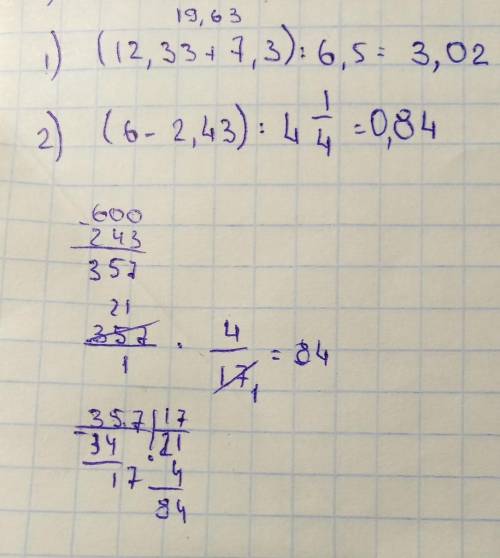 19,63
1) (12,33+7,3):6,5=3,02
2) (6-2,43):4 1/4=0,84
-600
243
357
21
357/1 · 4/17 1 = 84
-357|17
34 21
17 · 4
84